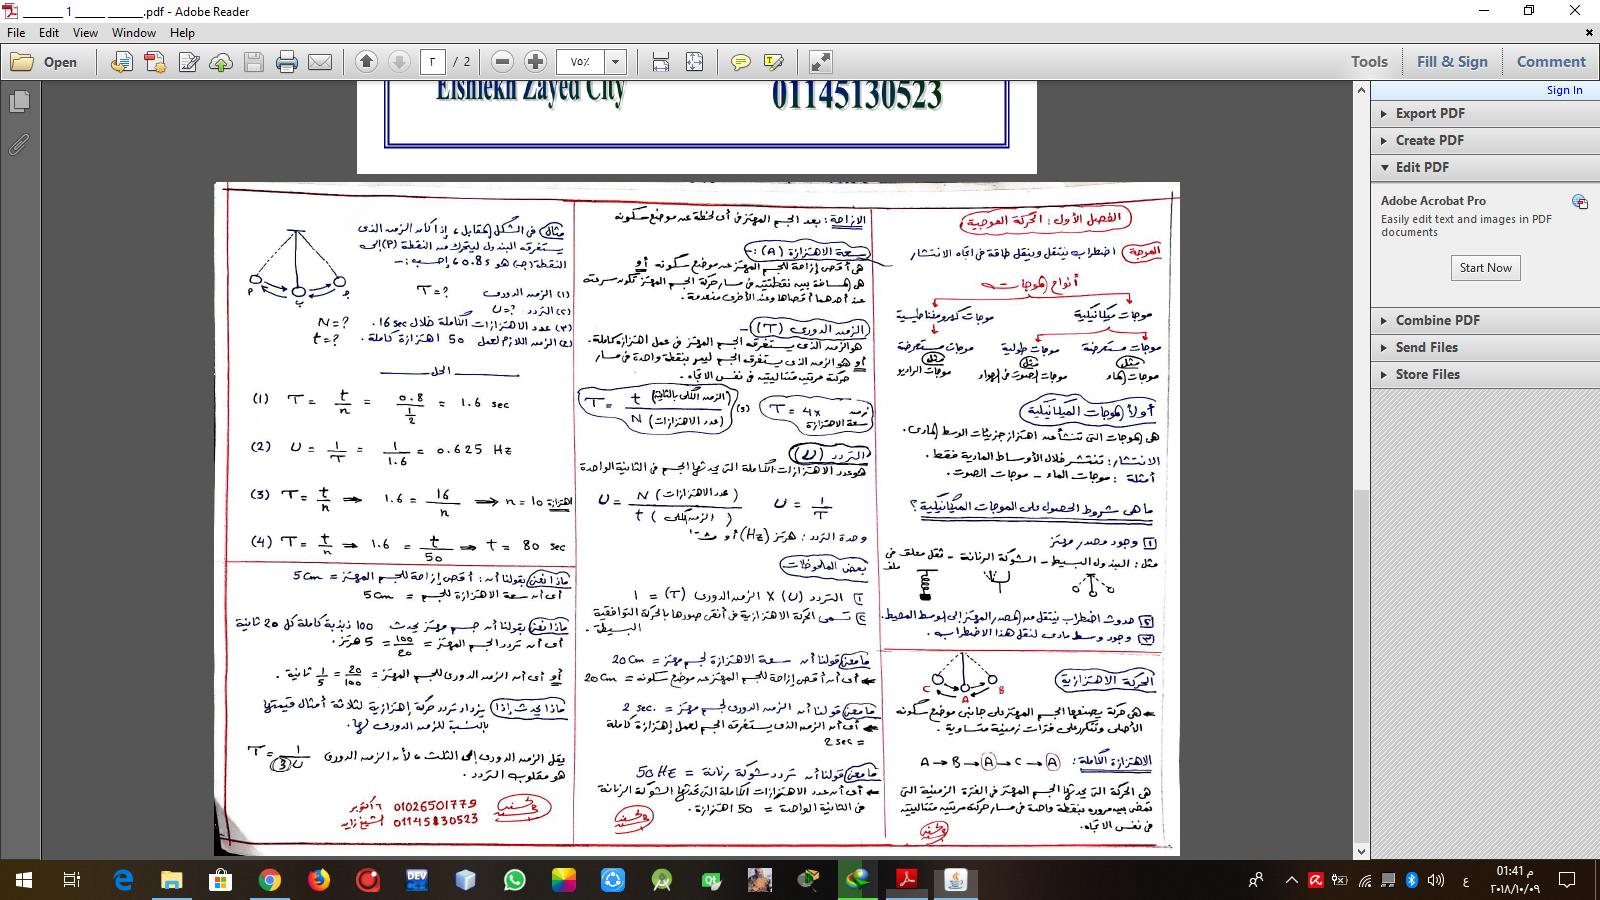 1 .pdf - Adobe Reader
File Edit View Window Help
Open
٢ / 2
٧٥%
Tools Fill & Sign Comment
Sign In
Export PDF
Create PDF
Edit PDF
Adobe Acrobat Pro
Easily edit text and images in PDF
documents
Start Now
Combine PDF
Send Files
Store Files
Elshiekh Zayed City 01145130523
الفصل الأول: الحركة الموجية
الموجة اضطراب ينتقل وينقل طاقة فى اتجاه الانتشار
أنواع الموجات
موجات ميكانيكية موجات كهرومغناطيسية
موجات مستعرضة موجات طولية موجات مستعرضة
مثل مثل مثل
موجات الماء موجات الصوت فى الهواء موجات الراديو
أولاً الموجات الميكانيكية
هى الموجات التى تنشأ عن اهتزاز جزيئات الوسط المادى.
الانتشار: تنتشر خلال الأوساط المادية فقط.
أمثلة: موجات الماء - موجات الصوت.
ما هى شروط الحصول على الموجات الميكانيكية؟
١ وجود مصدر مهتز
مثل: البندول البسيط - الشوكة الرنانة - ثقل معلق فى
ملف
٢ حدوث اضطراب ينتقل من المصدر المهتز إلى الوسط المحيط.
٣ وجود وسط مادى لنقل هذا الاضطراب.
الحركة الاهتزازية
C A B
هى حركة يصنعها الجسم المهتز على جانبى موضع سكونه
الأصلى وتتكرر على فترات زمنية متساوية.
الاهتزازة الكاملة: A → B → A → C → A
هى الحركة التى يحدثها الجسم المهتز فى الفترة الزمنية التى
تمضى بين مروره بنقطة واحدة فى مسار حركته مرتين متتاليتين
فى نفس الاتجاه.
الازاحة: بعد الجسم المهتز فى أى لحظة عن موضع سكونه
سعة الاهتزازة (A):-
هى أقصى إزاحة للجسم المهتز عن موضع سكونه أو
هى المسافة بين نقطتين فى مسار حركة الجسم المهتز تكون سرعته
عند أحدهما أقصاها وعند الأخرى منعدمة.
الزمن الدورى (T):-
هو الزمن الذى يستغرقه الجسم المهتز فى عمل اهتزازة كاملة.
أو هو الزمن الذى يستغرقه الجسم ليمر بنقطة واحدة فى مسار
حركته مرتين متتاليتين فى نفس الاتجاه.
T = 4 x زمن سعة الاهتزازة
T = t (الزمن الكلى بالثانية) / N (عدد الاهتزازات) (s)
التردد (U)
هو عدد الاهتزازات الكاملة التى يحدثها الجسم فى الثانية الواحدة
U = N (عدد الاهتزازات) / t (الزمن الكلى) U = 1/T
وحدة التردد: هرتز (Hz) أو ث⁻¹
بعض الملحوظات
١ التردد (U) x الزمن الدورى (T) = 1
٢ تسمى الحركة الاهتزازية فى أنقى صورها بالحركة التوافقية
البسيطة.
ما معنى قولنا أن سعة الاهتزازة لجسم مهتز = 20 cm
أى أن أقصى إزاحة للجسم المهتز عن موضع سكونه = 20 cm
ما معنى قولنا أن الزمن الدورى لجسم مهتز = 2 sec.
أى أن الزمن الذى يستغرقه الجسم لعمل إهتزازة كاملة
= 2 sec
ما معنى قولنا أن تردد شوكة رنانة = 50 Hz
أى أن عدد الاهتزازات الكاملة التى تحدثها الشوكة الرنانة
فى الثانية الواحدة = 50 اهتزازة.
مثال فى الشكل المقابل، إذا كان الزمن الذى
يستغرقه البندول ليتحرك من النقطة (P) إلى
النقطة (ج) هو 0.8 s احسب:-
(١) الزمن الدورى T = ?
(٢) التردد U = ?
(٣) عدد الاهتزازات الكاملة خلال 16 sec. N = ?
(٤) الزمن اللازم لعمل 50 اهتزازة كاملة. t = ?
الحل
(1) T = t/n = 0.8/½ = 1.6 sec
(2) U = 1/T = 1/1.6 = 0.625 Hz
(3) T = t/n → 1.6 = 16/n → n = 10 اهتزازة
(4) T = t/n → 1.6 = t/50 → t = 80 sec
ماذا نعنى بقولنا أن: أقصى إزاحة للجسم المهتز = 5 cm
أى أن سعة الاهتزازة للجسم = 5 cm
ماذا نعنى بقولنا أن جسم مهتز يحدث 100 ذبذبة كاملة كل 20 ثانية
أى أن تردد الجسم المهتز = 100/20 = 5 هرتز.
أو أى أن الزمن الدورى للجسم المهتز = 20/100 = 1/5 ثانية.
ماذا يحدث إذا يزداد تردد حركة إهتزازية لثلاثة أمثال قيمتها
بالنسبة للزمن الدورى لها.
يقل الزمن الدورى إلى الثلث، لأن الزمن الدورى T = 1/3U
هو مقلوب التردد.
01026501779 ٦ أكتوبر
01145130523 الشيخ زايد
DEV
Qt
ع
01:41 م
٢٠١٨/١٠/٠٩